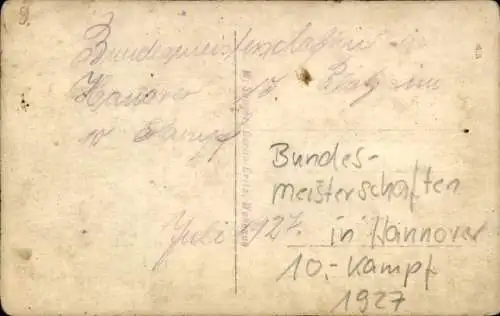 Bundesmeisterschaften in
Hanover 10 Platz im
10 Kampf
Juli 1927.
Bundes-
meisterschaften
in Hannover
10.-Kampf
1927